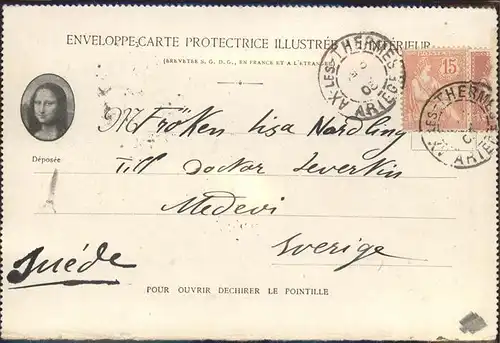 ENVELOPPE-CARTE PROTECTRICE ILLUSTRÉE INTÉRIEUR
(BREVETÉE S. G. D. G., EN FRANCE ET A L'ÉTRANGER)
AX-LES-THERMES
ARIÈGE
15
AX-LES-THERMES
ARIÈGE
M Fröken Lisa Nordling
Déposée
Till Doctor Levertin
Medevi
Sverige
Suéde
POUR OUVRIR DÉCHIRER LE POINTILLÉ